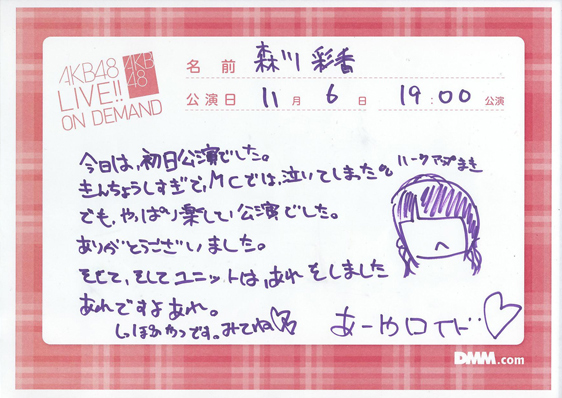 AKB48
LIVE!!
ON DEMAND
AKB
48
名前 森川 彩香
公演日 11月 6日 19:00公演
今日は、初日公演でした。
きんちょうしすぎで、MCでは、泣いてしまった
ハーフアップまき
でも、やっぱり楽しい公演でした。
ありがとうございました。
そして、そしてユニットは、あれをしました
あれですよあれ。
しっぽのやつです。みてね♡
あーやロイド♡
DMM.com